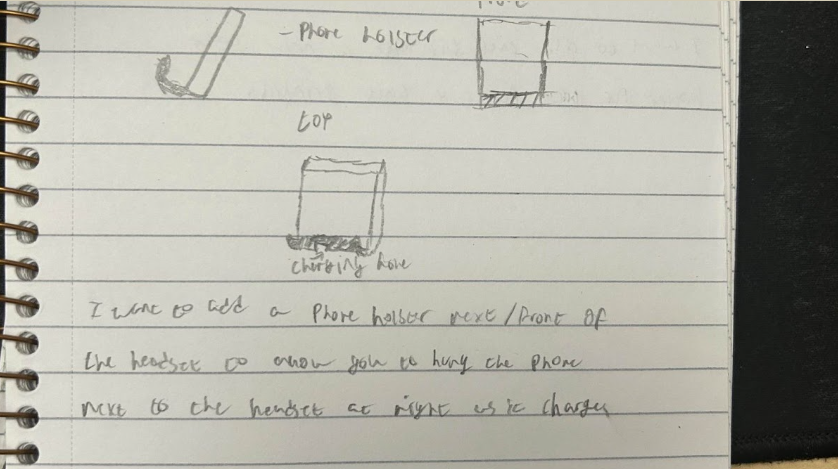 - Phone holster
top
charging hole
I want to add a Phone holster next/front of
the headset to allow you to hung the phone
next to the headset at night as it charges